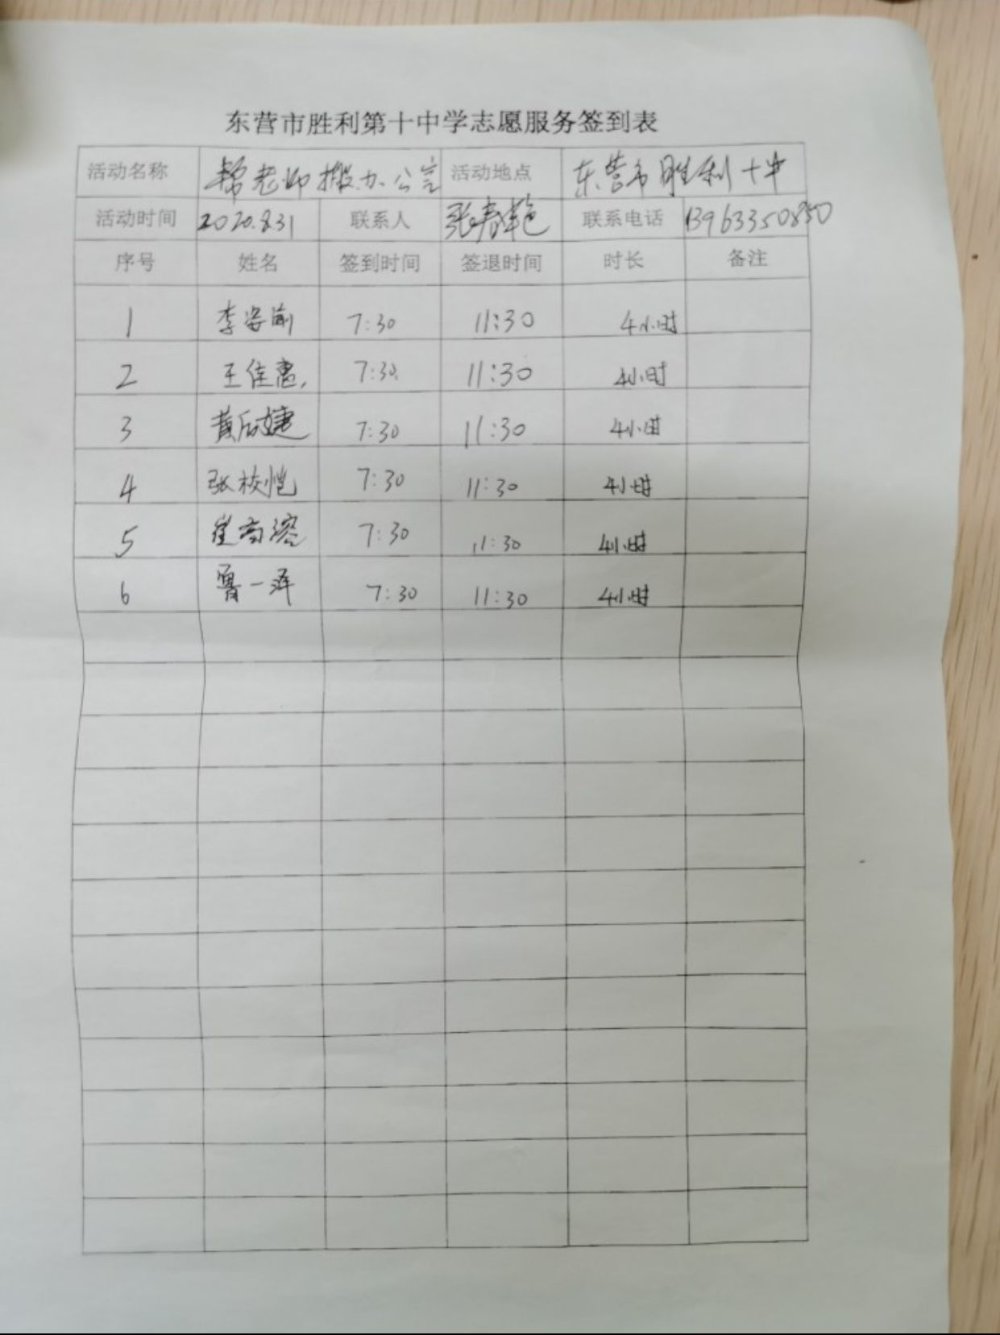 东营市胜利第十中学志愿服务签到表
活动名称 帮老师搬办公室 活动地点 东营市胜利十中
活动时间 2020.8.31 联系人 张春艳 联系电话 13963350850
序号 姓名 签到时间 签退时间 时长 备注
1 李安渝 7:30 11:30 4小时
2 王佳惠 7:30 11:30 4小时
3 黄 婕 7:30 11:30 4小时
4 张校恺 7:30 11:30 4小时
5 崔尚溶 7:30 11:30 4小时
6 曹一泽 7:30 11:30 4小时